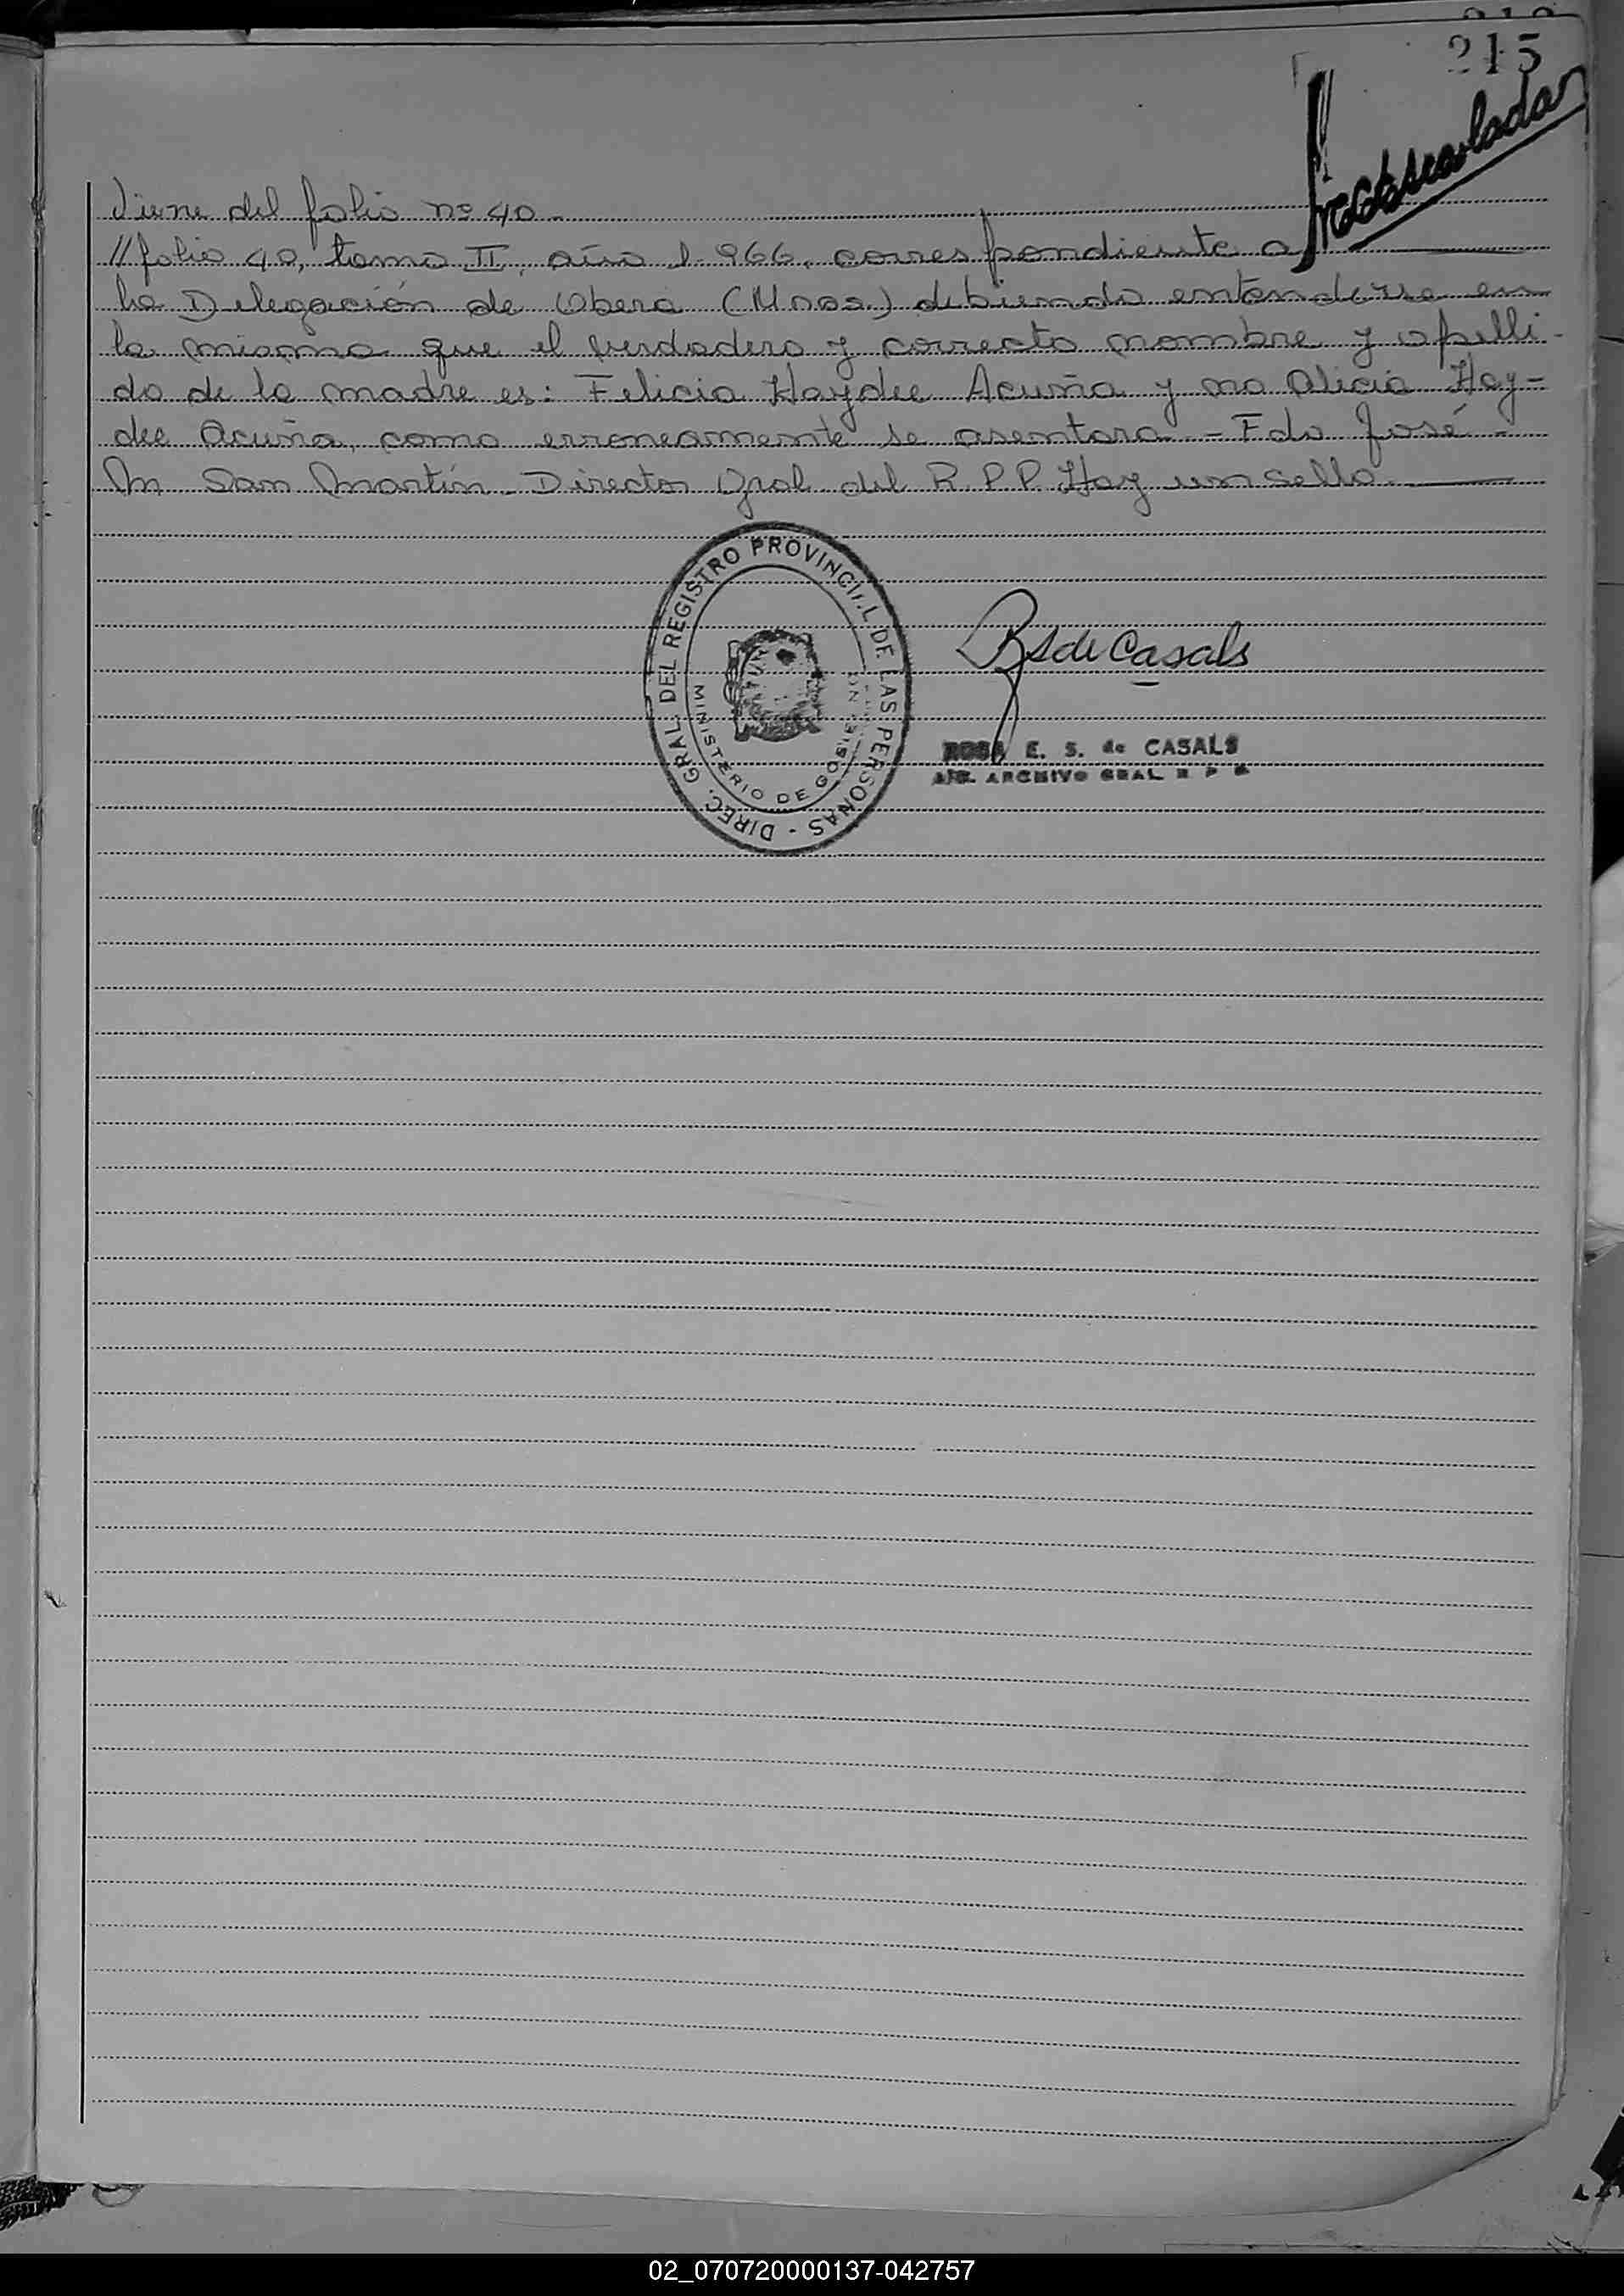 215
Viene del folio nº 40
// folio 40, tomo II, año 1.966, correspondiente a
la Delegación de Obera (Mnes.) debiendo entenderse en
la misma que el verdadero y correcto nombre y apelli-
do de la madre es: Felicia Haydee Acuña y no Alicia Hay-
dee Acuña, como erroneamente se asentara - Fdo José -
M San Martín - Director Gral. del R.P.P. Hay un sello.
DIREC. GRAL. DEL REGISTRO PROVINCIAL DE LAS PERSONAS -
MINISTERIO DE GOBIERNO
RSde Casals
ROSA E. S. de CASALS
ARCHIVO GRAL R P
02_070720000137-042757